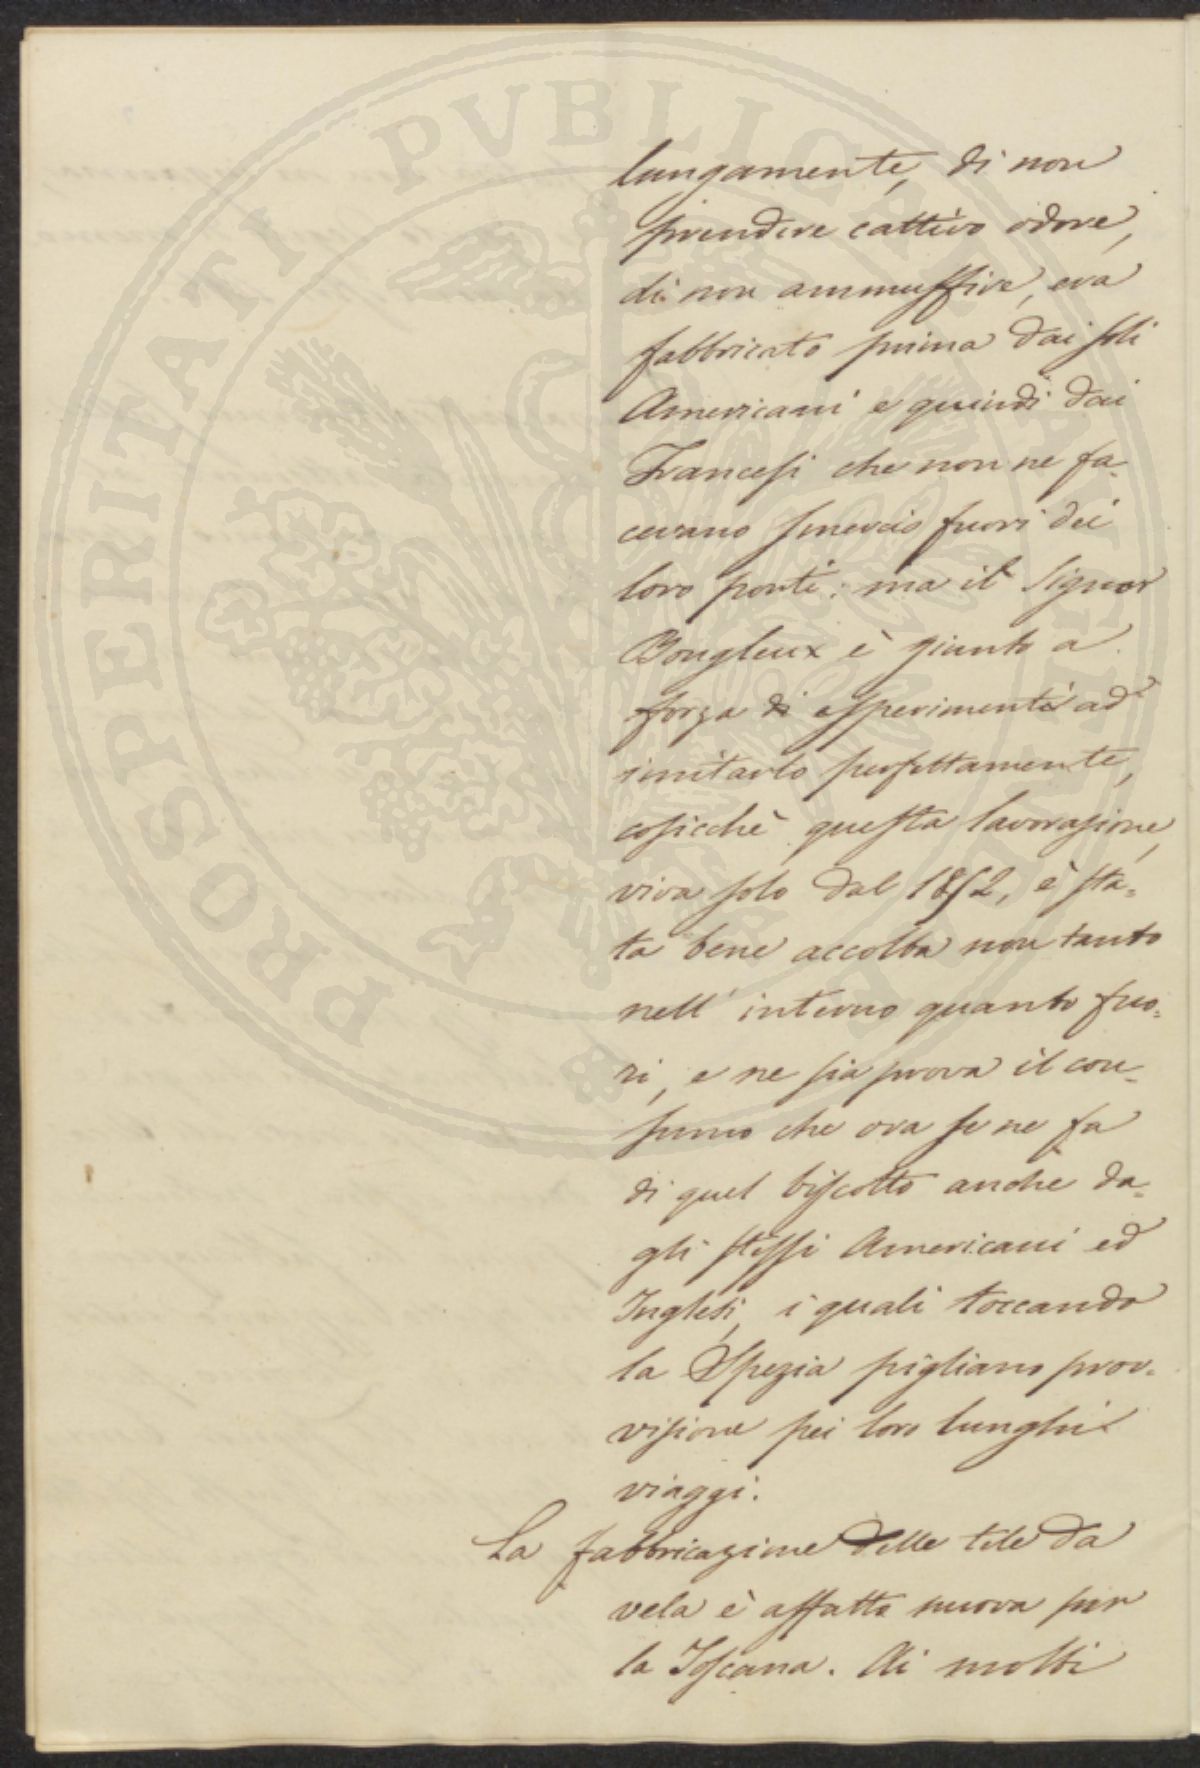 lungamente, di non
prendere cattivo odore,
di non ammuffire, era
fabbricato prima dai soli
Americani e quindi dai
Francesi che non ne fa-
cevano smercio fuori dei
loro porti: ma il Signor
Bougleux è giunto a
forza di esperimenti ad
imitarlo perfettamente,
cosicchè questa lavorasione,
viva solo dal 1852, è sta-
ta bene accolta non tanto
nell' interno quanto fuo-
ri, e ne sia prova il con-
sumo che ora se ne fa
di quel biscotto anche da-
gli stessi Americani ed
Inglesi, i quali toccando
la Spezia pigliano prov-
visione pei loro lunghi
viaggi.
La fabbricazione delle tele da
vela è affatto nuova per
la Toscana. Ai molti
PROSPERITATI PVBLICAE